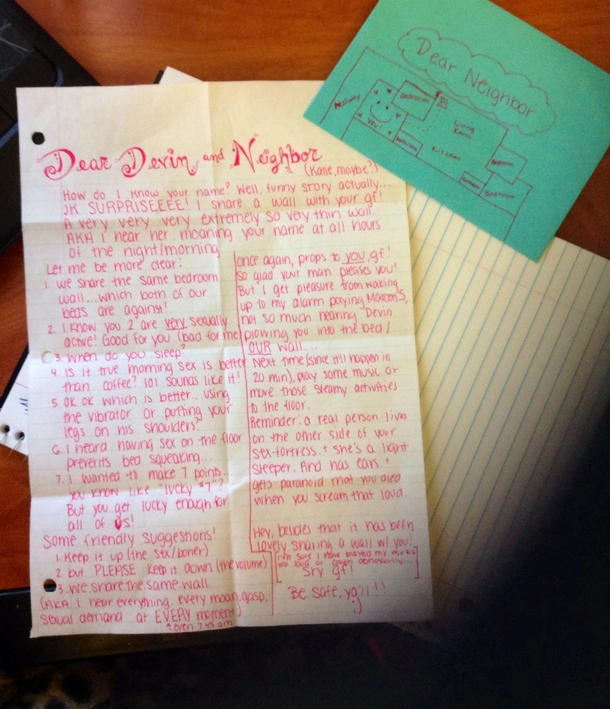 Dear Devin and Neighbor
(Katie, maybe?)
How do I know your name? Well, funny story actually...
JK SURPRISEEEE! I share a wall with your gf!
A very very very extremely so very thin wall.
AKA I hear her moaning your name at all hours
of the night/morning
Let me be more clear:
1. we share the same bedroom
wall...which both of our
beds are against!
2. I know you 2 are very sexually
active! Good for you (bad for me)
3. When do you sleep?
4. Is it true morning sex is better
than coffee? 101 sounds like it!
5. OK OK which is better... using
the vibrator or putting your
legs on his shoulders?
6. I heard having sex on the floor
prevents bed squeaking...
7. I wanted to make 7 points,
you know like "lucky #7"?
But you get lucky enough for
all of us!
Some friendly suggestions!
1. Keep it up (the sex/boner)
2. but PLEASE keep it down (the volume)
3. We share the same wall.
(AKA I hear everything. every moan, gasp,
sexual demand at EVERY moment
↑ even 7:45 am
once again, props to you, gf!
so glad your man pleases you!
But I get pleasure from waking
up to my alarm playing Maroon 5,
not so much hearing "Devin
plowing you into the bed/
OUR wall...
Next time (since it'll happen in
20 min), play some music or
move those steamy activities
to the floor.
Reminder: a real person lives
on the other side of your
sex-fortress. + she's a light
sleeper. And has ears. +
gets paranoid that you died
when you scream that loud.
Hey, besides that it has been
lovely sharing a wall w/ you!
I'm sure I have blasted my music
too loud or
Sry gf!
Be safe, ya'll!!
:)
Dear Neighbor
Hallway
You!
Bedroom
Living
Room
Kitchen
Bedroom
Bedroom